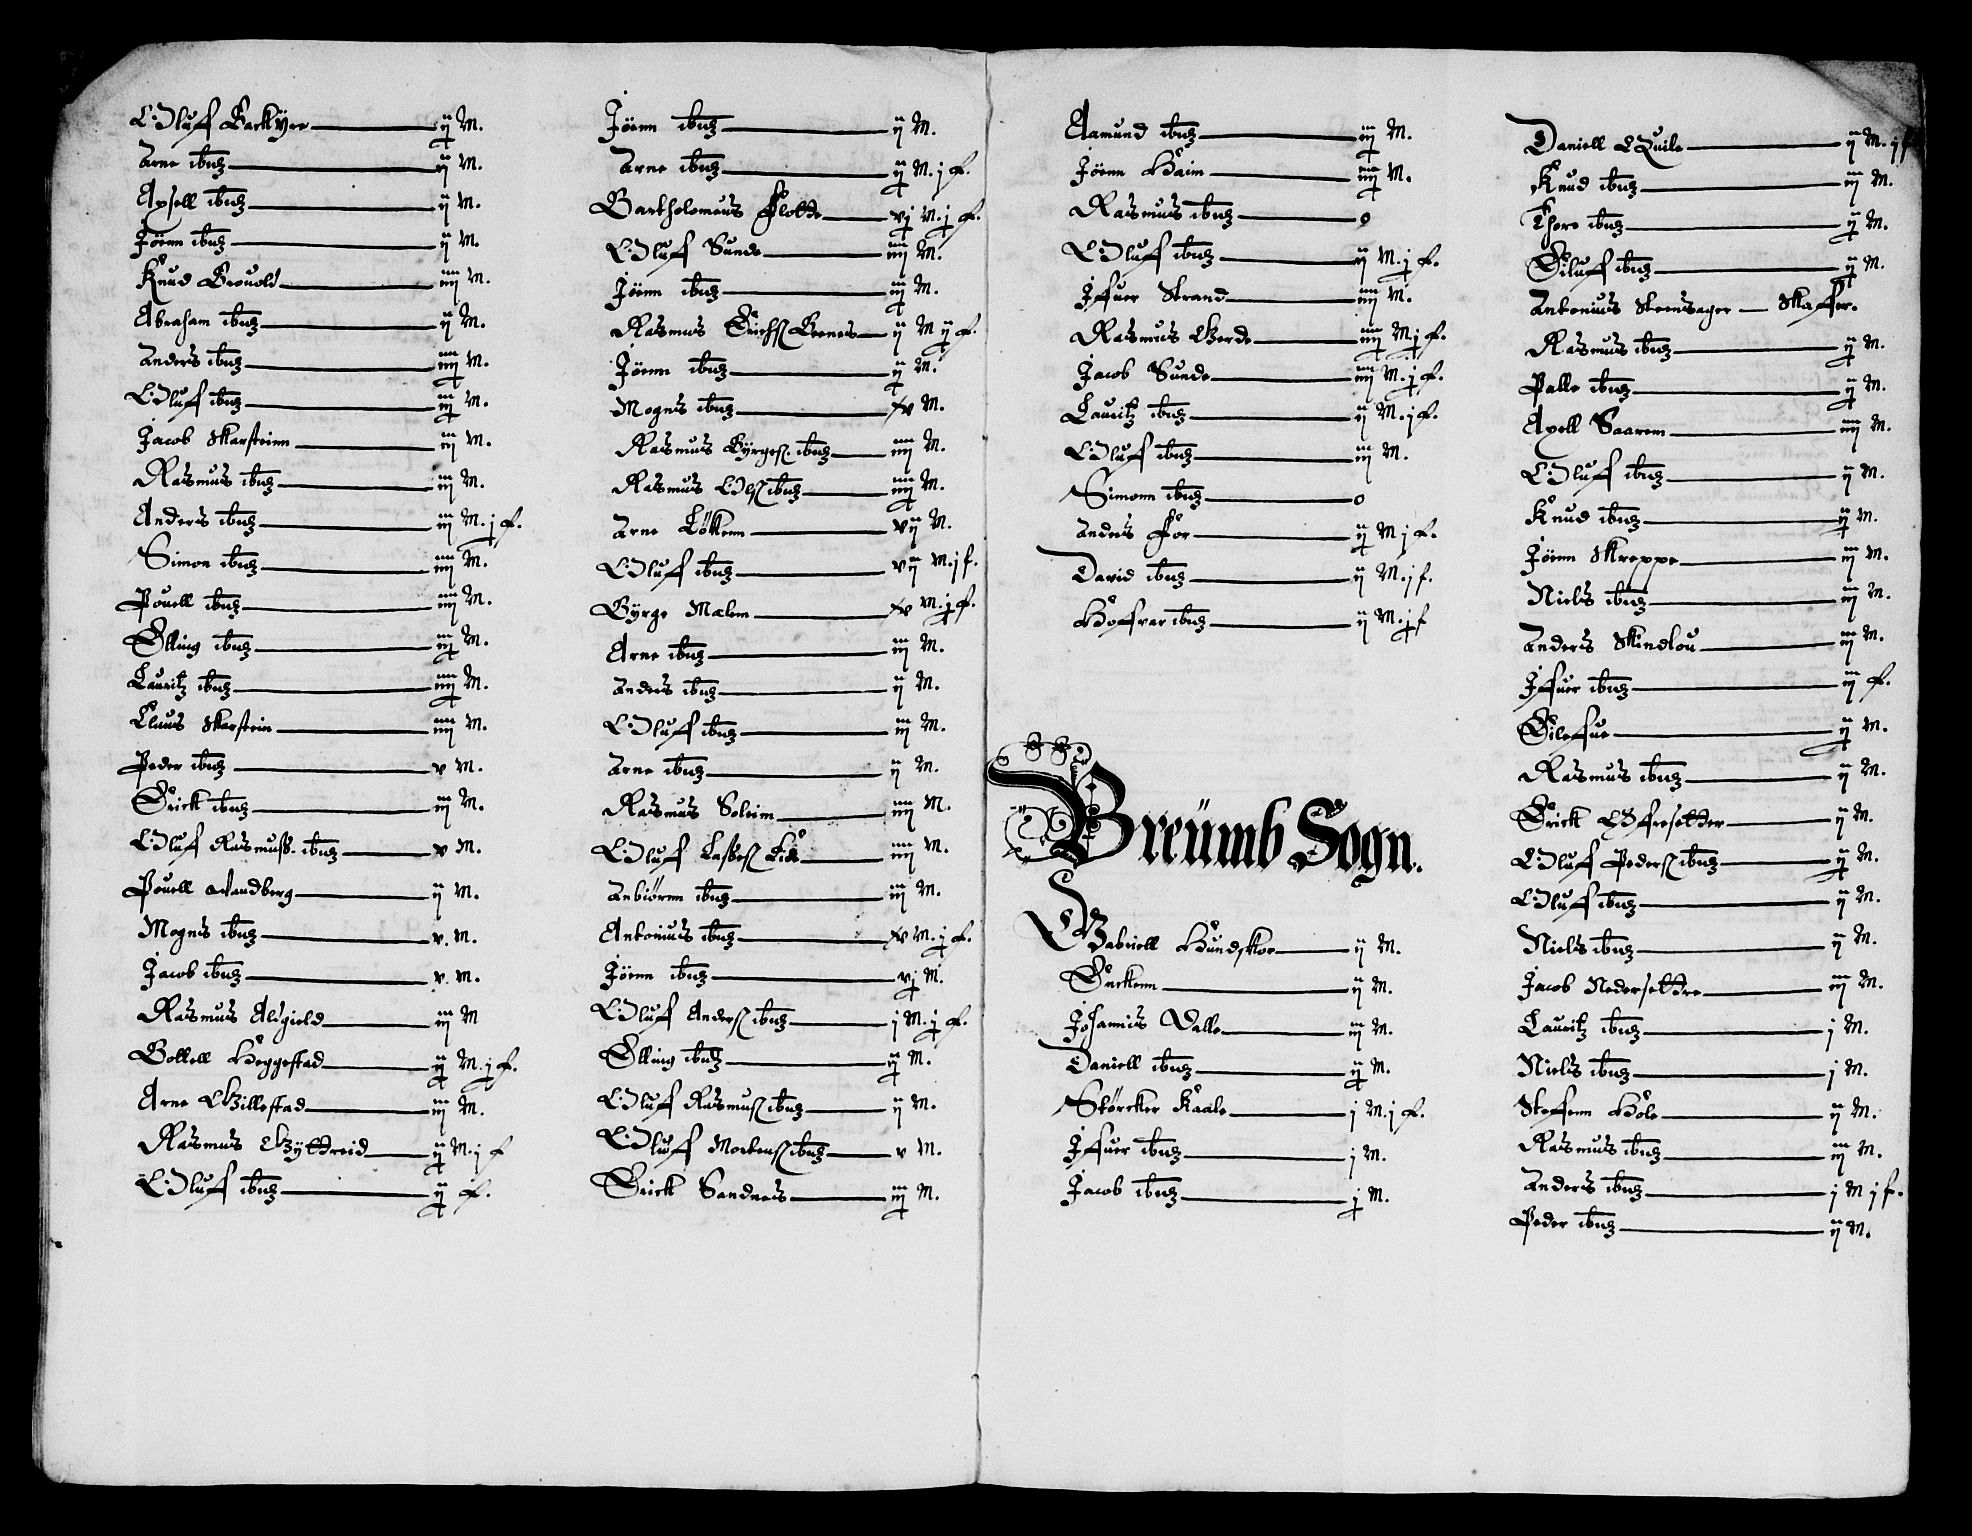 Oluff Barkÿre ij M.
Arne ibid ij M.
Axsell ibid ij M.
Jöenn ibid ij M.
Knud Grouold iiij M.
Abraham ibid ij M.
Anders ibid iiij M.
Oluff ibid iij M.
Jacob Skarsteinn iij M.
Rasmus ibid iij M.
Anders ibid iij M. j f.
Simon ibid iiij M.
Pouell ibid iiij M.
Elling ibid iij M.
Lauritz ibid iiij M.
Claus Skarstein iiij M.
Peder ibid v M.
Erick ibid iij M.
Oluff Rasmuss. ibid v M.
Pouell Sandberg ij M.
Mogns ibid v. M.
Jacob ibid v. M.
Rasmus Alsgield iij M
Bottell Heggestad ij M. j f.
Arne Gillestad iij M.
Rasmus Gÿttreid ij M. j f
Oluff ibid ij f.
Jöenn ibid ij M.
Arne ibid ij M. j f.
Bartholomeus Flotte vj M. j f.
Oluff Sunde iiij M.
Jöenn ibid iij M.
Rasmus Erichs Beenes ij M ij f.
Jöenn ibid ij M.
Mogns ibid xv M.
Rasmus Bÿrges. ibid iiij M.
Rasmus Ols ibid iiij M.
Arne Lökenn vij M.
Oluff ibid vij M. j f.
Bÿrge Mælem xv M. j f.
Arne ibid iij M.
Anders ibid ij M.
Oluff ibid iij M.
Arne ibid ij M.
Rasmus Soleim iiij M.
Oluff Lasses Lide iiij M.
Anbiörnn ibid iij M.
Antonius ibid xv M. j f.
Jöenn ibid vj M.
Oluff Anders ibid j M. j f.
Elling ibid ij M.
Oluff Rasmus ibid ij M.
Oluff Mortens ibid v M.
Erick Sandnes iij M.
Aamund ibid iij M.
Jöenn Haim iiij M.
Rasmus ibid o
Oluff ibid ij M. j f.
Iffuer Strand iiij M.
Rasmus Gierde iiij M j f.
Jacob Sunde iiij M. j f.
Lauritz ibid ij M. j f.
Oluff ibid iij M.
Simonn ibid o
Anders For ij M j f.
David ibid ij M. j f.
Hoffvar ibid ij M. j f
Breümb Sogn.
Gabriell Hundskor ij M.
Encken ij M.
Johannis Valle iij M.
Daniell ibid ij M.
Störcker Kaale j M. j f.
Iffuer ibid j M.
Jacob ibid j M.
Daniell Quile ij M. j f
Knud ibid iij M.
Thore ibid ij M.
Eiluff ibid ij M.
Antonius Steensager Skaffer.
Rasmus ibid ij M.
Palle ibid ij M.
Axell Saarem iiij M.
Oluff ibid ij M.
Knud ibid ij M.
Jöenn Skreppe iij M.
Niels ibid iij M.
Anders Skindlou iij M.
Iffuer ibid iij f.
Eileffue ij M.
Rasmus ibid ij M.
Erick Offresetter ij M.
Oluff Peders ibid ij M.
Oluff ibid ij M.
Niels ibid ij M.
Jacob Nedersettre iij M.
Lauritz ibid j M.
Niels ibid j M.
Steffenn Hole ij M.
Rasmus ibid iij M.
Anders ibid j M j f.
Peder ibid ij M.